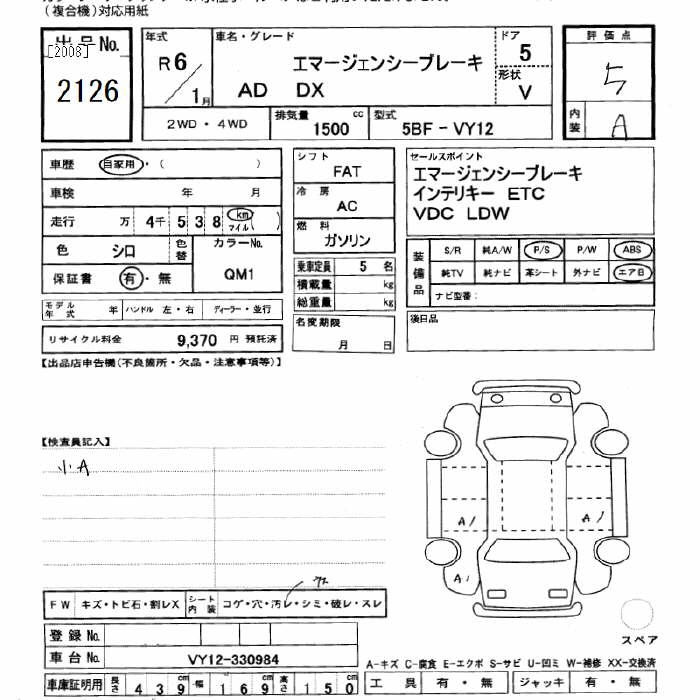 (複合機)対応用紙
出品No.
[2008]
2126
年式
R6/1月
車名・グレード
エマージェンシーブレーキ
AD DX
ドア
5
形状
V
2WD・4WD
排気量
1500 cc
型式
5BF-VY12
評価点
5
内装
A
車歴 自家用・( )
車検 年 月
走行 万 4千 5 3 8 km マイル( )
色 シロ 色替
カラーNo.
QM1
保証書 有・無
モデル年式 年 ハンドル 左・右 ディーラー・並行
リサイクル料金 9,370 円 預託済
シフト
FAT
冷房
AC
燃料
ガソリン
乗車定員 5 名
積載量 kg
総重量 kg
名変期限
月 日
セールスポイント
エマージェンシーブレーキ
インテリキー ETC
VDC LDW
装備品
S/R 純A/W P/S P/W ABS
純TV 純ナビ 革シート 外ナビ エアB
ナビ型番:
後日品
【出品店申告欄(不良箇所・欠品・注意事項等)】
【検査員記入】
小A
A1
A1
A1
FW キズ・トビ石・割レX シート内装 コゲ・穴・汚レ・シミ・破レ・スレ
スペア
登録No.
車台No. VY12-330984
車庫証明用 長さ 439 cm 幅 169 cm 高さ 150 cm
A-キズ C-腐食 E-エクボ S-サビ U-凹ミ W-補修 XX-交換済
工具 有・無 ジャッキ 有・無